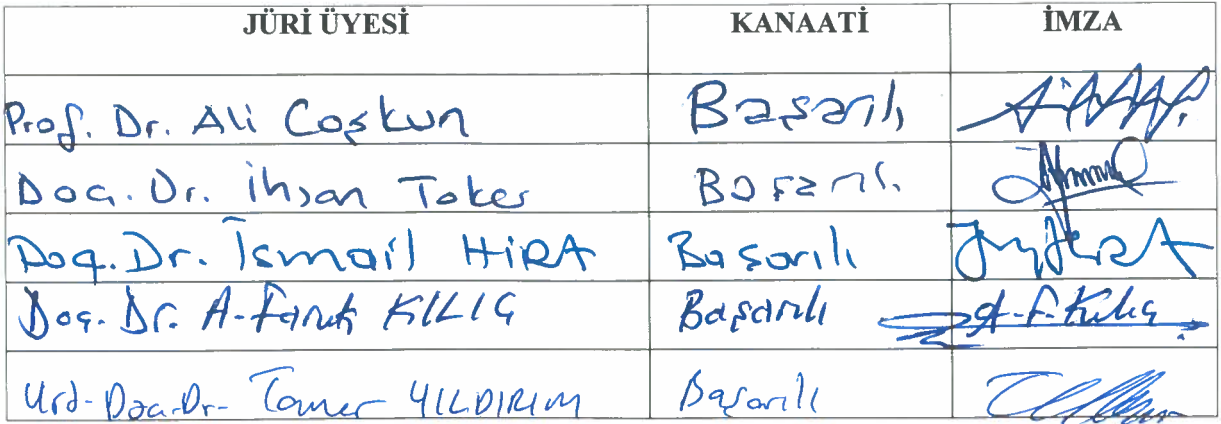 JÜRİ ÜYESİ KANAATİ İMZA
Prof. Dr. Ali Coşkun Başarılı
Doç. Dr. İhsan Toker Başarılı
Doç. Dr. İsmail HİRA Başarılı
Doç. Dr. A. Faruk KILIÇ Başarılı A.F. Kılıç
Yrd. Doç. Dr. Tamer YILDIRIM Başarılı